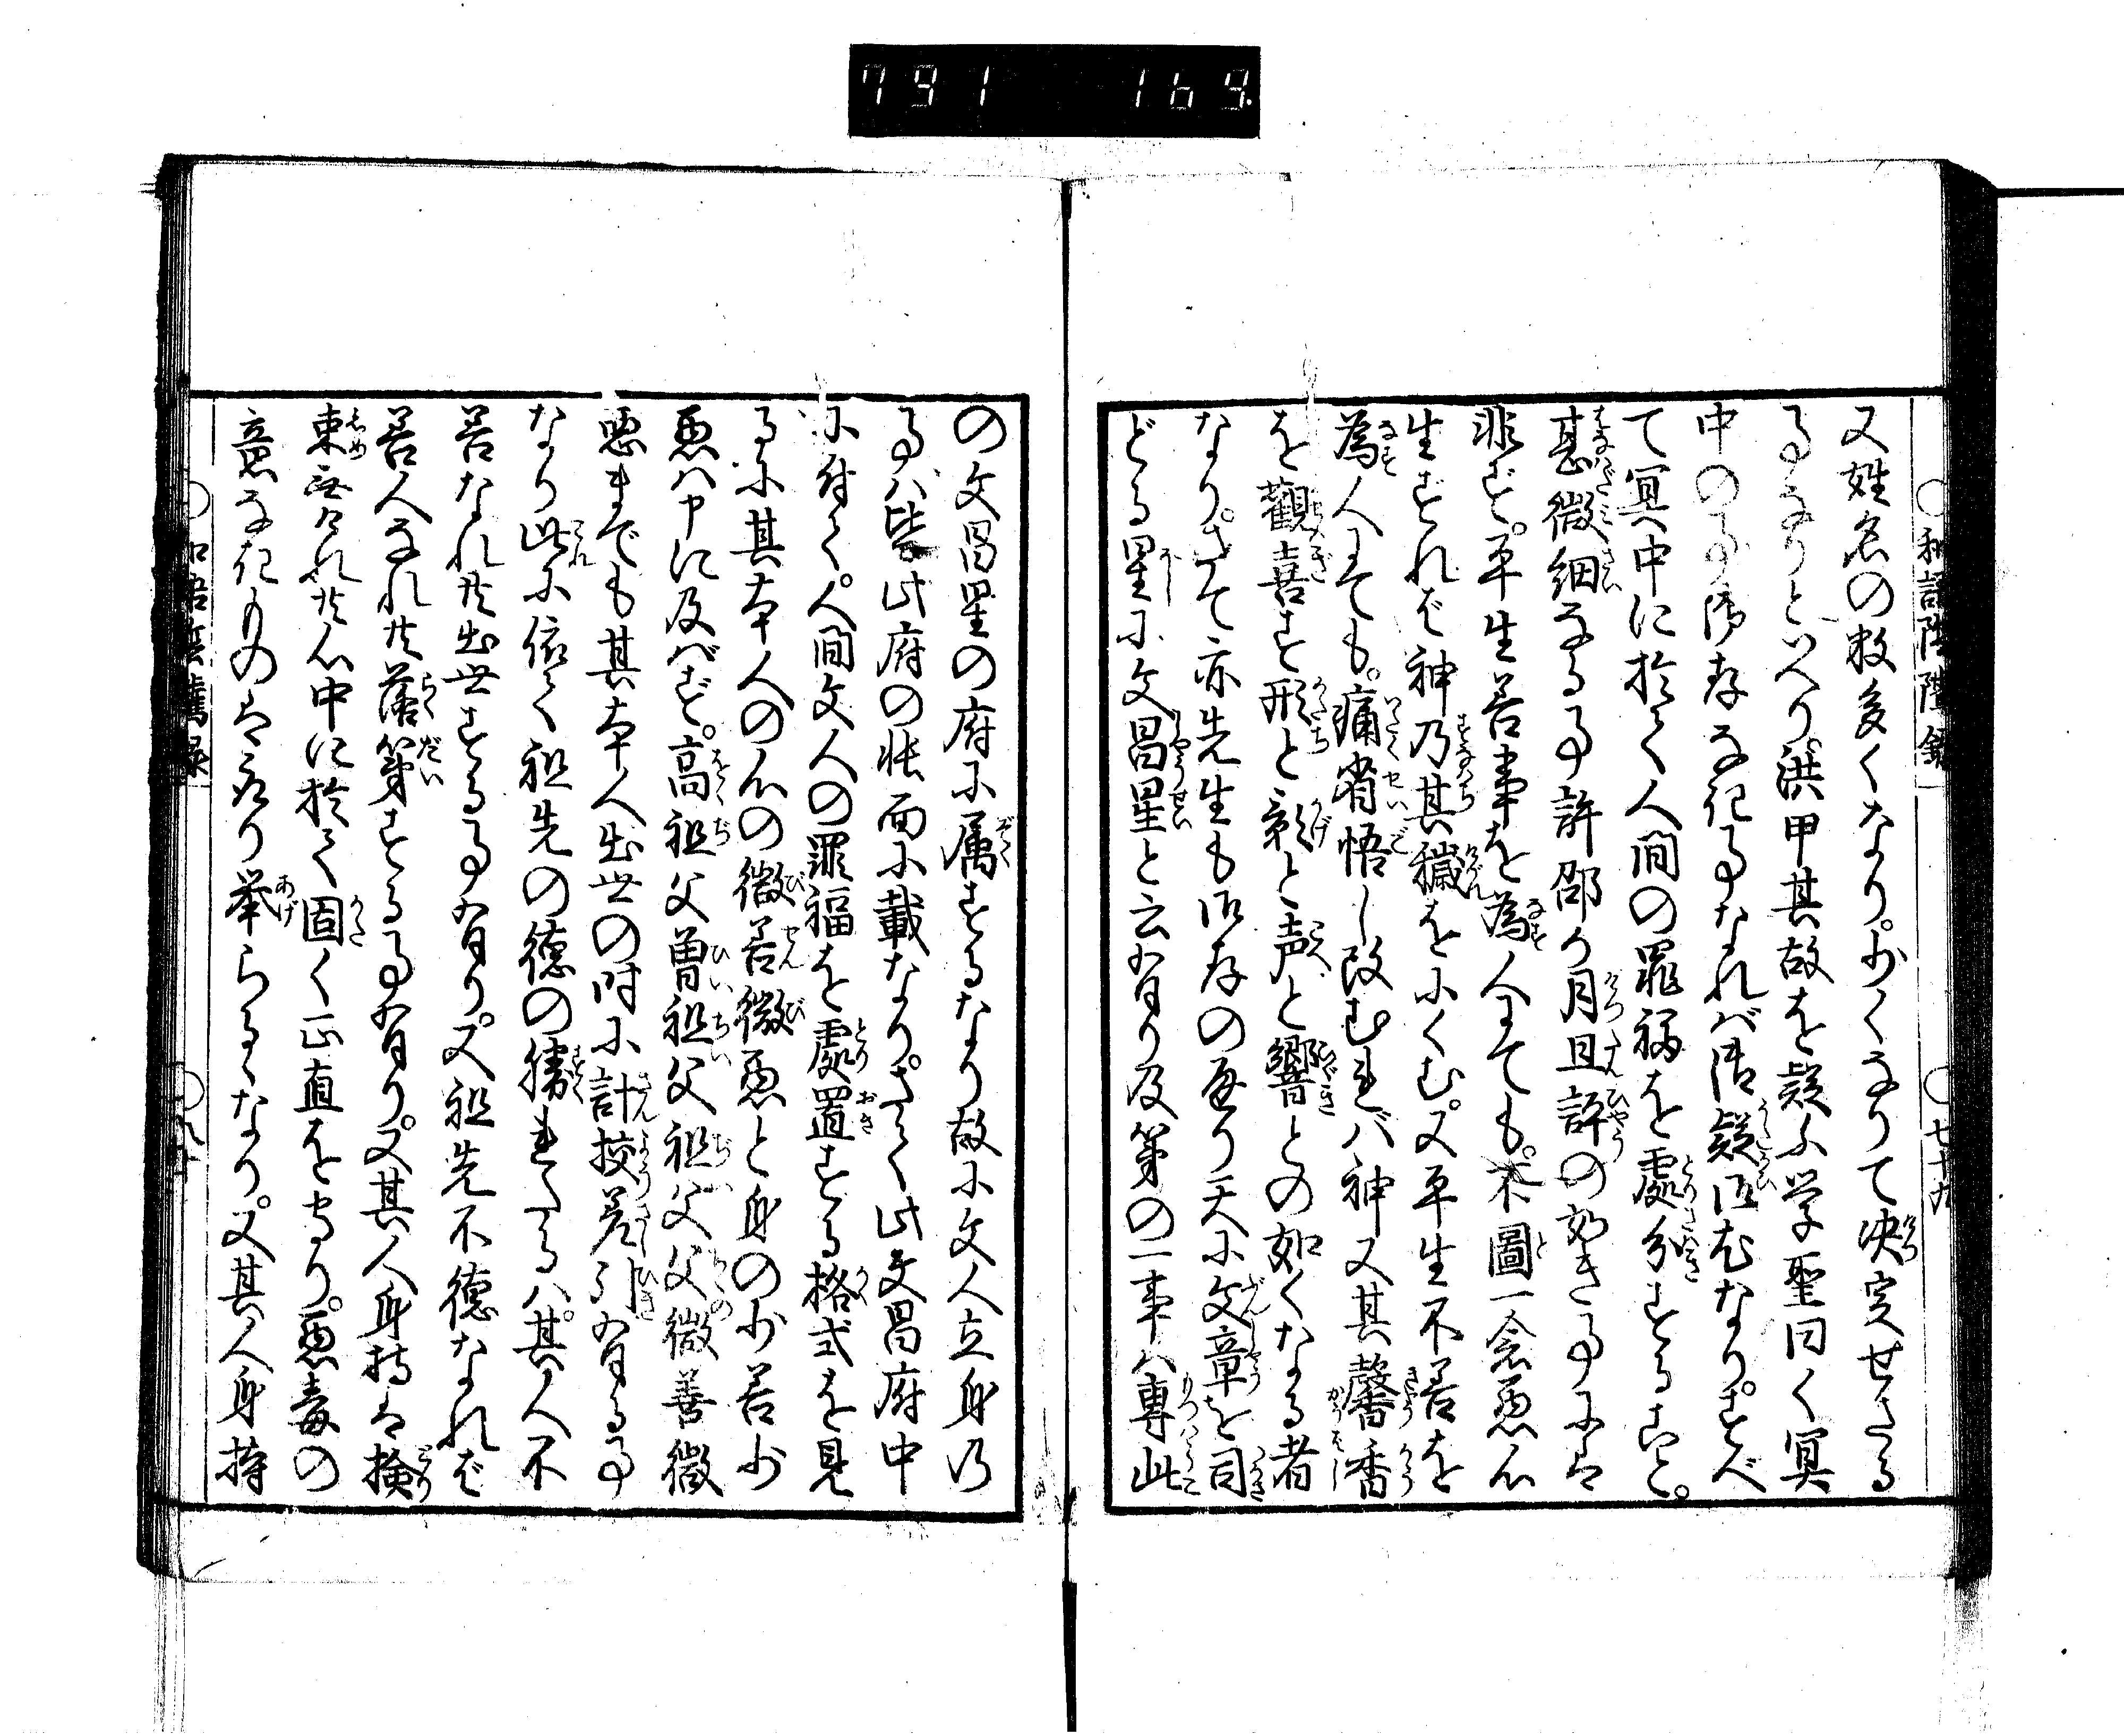 791 169.
和語陰隲録 七十九
又姓名の数多くなり。少くなりて决定せざる
事なりといへり。洪甲其故を疑ふ学聖曰く冥
中の事御存なき事なれバ御疑御尤なり。すべ
て冥中に於て人間の罪福を處分すること。
甚微細なる事許邵が月旦評の如き事には
非ず。平生善事を為人にても。不圖一念悪心
生ずれば神乃其穢をにくむ。又平生不善を
為人にても。痛省悟し改むれバ神又其馨香
を觀喜す形と影と声と響との如くなる者
なり。さて亦先生も御存の通り天に文章を司
どる星に文昌星と云有り及第の一事ハ専此
の文昌星の府に属するなり故に文人立身の
事ハ皆此府の帳面に載なり。さて此文昌府中
に付て。人間文人の罪福を處置する格式を見
るに其本人の心の微善微悪と身の少善少
悪ハ申に及ばず。高祖父曽祖父祖父父微善微
悪までも其本人出世の時に計挍差引有る事
なり此に依て祖先の徳の勝れたるハ。其人不
善なれ共出世する事有り。又祖先不徳なれば
善人なれ共落第する事有り。又其人身持は検
束無けれ共心中に於て固く正直を守り。悪毒の
意なきものは取り挙らるゝなり。又其人身持
和語陰隲録 八十